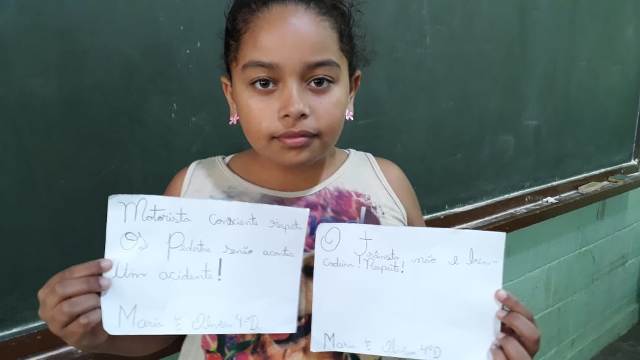 Motorista consciente respeita
Os Pedestre senão acontece
Um acidente!
Maria E Oliveira 4ºD
O Trânsito não e brin-
cadeira! Respeito!
Maria E Oliveira 4ºD